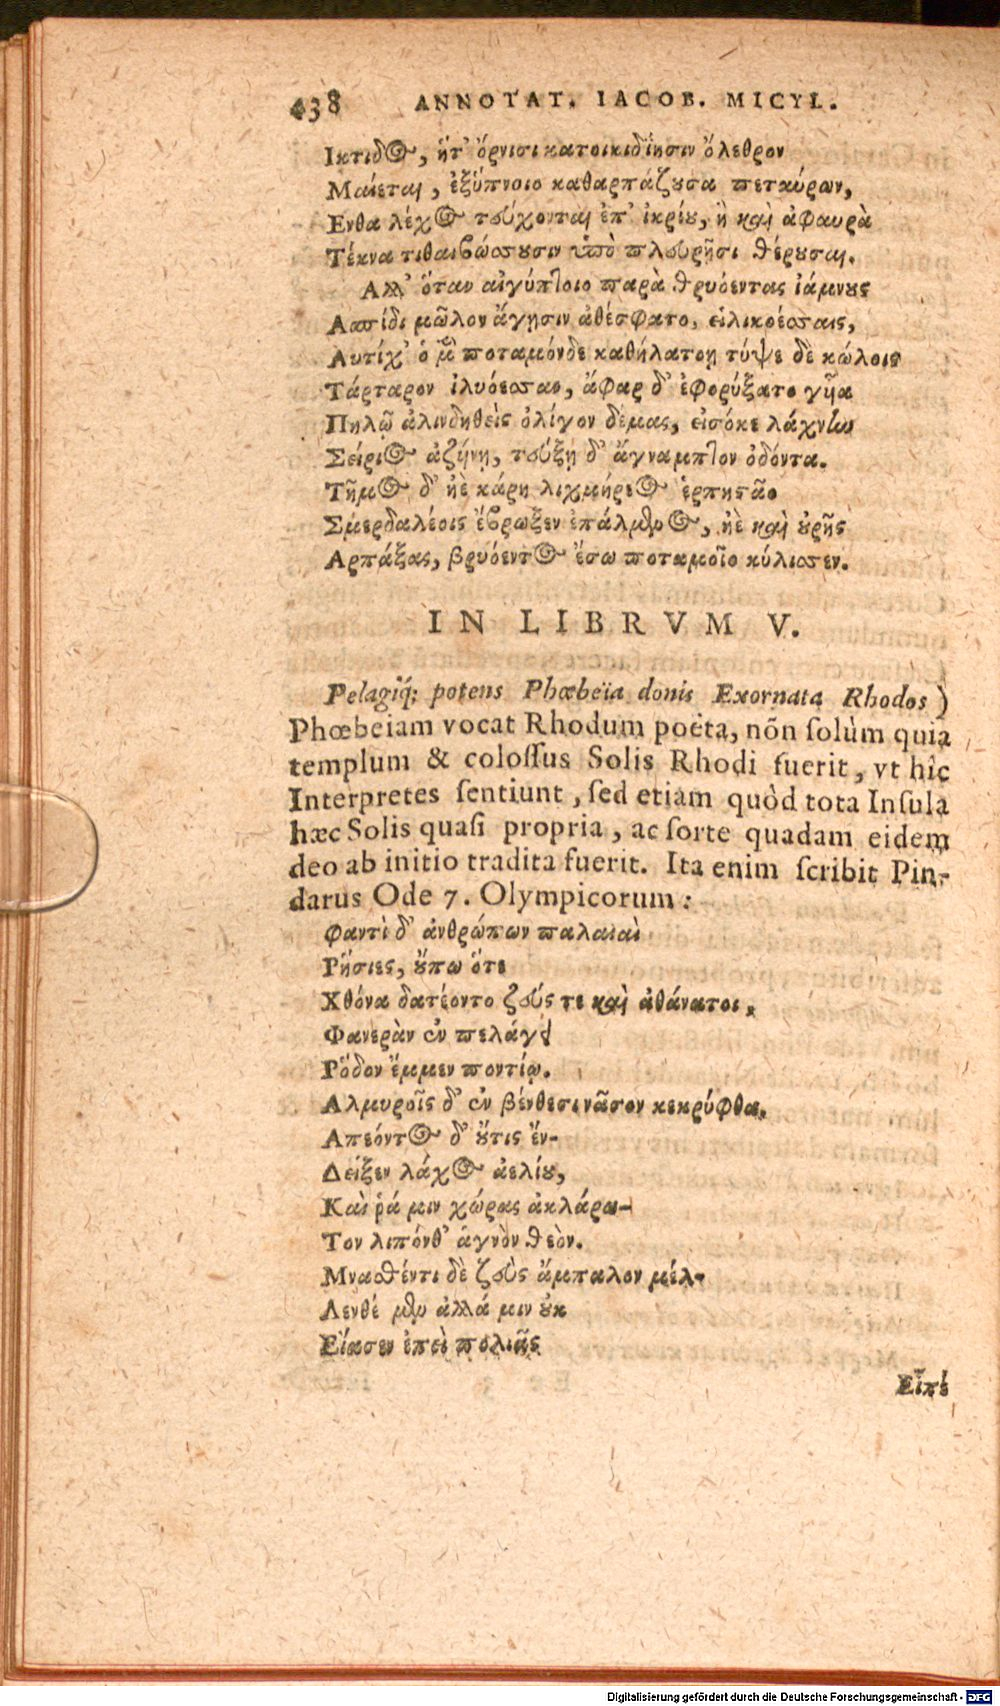 438 ANNOTAT. IACOB. MICYL.
Ικτιδος, ἥτ' ὄρνισι κατοικιδίῃσιν ὄλεθρον
Μαίεται, ἐξύπνοιο καθαρπάζουσα πετεύρων,
Ενθα λέχος τεύχονται ἐπ' ἰκρίου, ἢ καὶ ἀφαυρὰ
Τέκνα τιθαιβώσσουσιν ὑπὸ πλευρῇσι θέρουσαι.
Αλλ' ὅταν αἰγύπτοιο παρὰ θρυόεντας ἰάμνους
Ασπίδι μῶλον ἄγησιν ἀθέσφατο, εἱλικοέσσαις,
Αυτίχ' ὁ μὲν ποταμόνδε καθήλατο, τύψε δὲ κώλοις
Τάρταρον ἰλυόεσσαν, ἄφαρ δ' ἐφορύξατο γῆα
Πηλῷ ἀλινδηθεὶς ὀλίγον δέμας, εἰσόκε λάχνην
Σείριος ἀζήνῃ, τεύξῃ δ' ἄγναμπτον ὀδόντα.
Τῆμος δ' ἠὲ κάρη λιχμήρεος ἑρπηστᾶο
Σμερδαλέοις ἔβρωξεν ἐπάλμενος, ἠὲ καὶ οὐρῆς
Αρπάξας, βρυόεντος ἔσω ποταμοῖο κύλισσεν.
IN LIBRVM V.
Pelagiq́; potens Phœbeïa donis Exornata Rhodos )
Phœbeiam vocat Rhodum poëta, nõn ſolùm quia
templum & coloſſus Solis Rhodi fuerit, vt hîc
Interpretes ſentiunt, ſed etiam quòd tota Inſula
hæc Solis quaſi propria, ac ſorte quadam eidem
deo ab initio tradita fuerit. Ita enim ſcribit Pin-
darus Ode 7. Olympicorum:
Φαντὶ δ' ἀνθρώπων παλαιαὶ
Ρήσιες, οὔπω ὅτε
Χθόνα δατέοντο ζεύς τε καὶ ἀθάνατοι,
Φανερὰν ἐν πελάγει
Ρόδον ἔμμεν ποντίῳ.
Αλμυροῖς δ' ἐν βένθεσι νᾶσον κεκρύφθαι.
Απεόντος δ' οὔτις ἔν-
Δείξεν λάχος ἀελίου,
Καὶ ῥά μιν χώρας ἀκλάρω-
Τον λιπόνθ' ἁγνὸν θεὸν.
Μνασθέντι δὲ ζεὺς ἄμπαλον μέλ-
Λενθέ μεν ἀλλά μιν οὐκ
Είασεν ἐπεὶ πολιᾶς
Εἶπέ
Digitalisierung gefördert durch die Deutsche Forschungsgemeinschaft - DFG